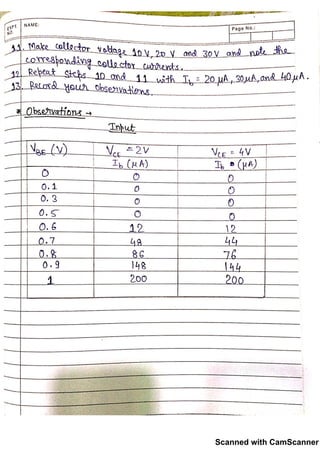 EXPT. NO.
NAME:
Page No.:
11. Make collector voltage 10 V, 20 V and 30 V and note the
corresponding collector currents.
12. Repeat steps 10 and 11 with Ib = 20 μA, 30μA, and 40 μA.
13. Record your observations.
* Observations →
Input
VBE (V) VCE = 2V VCE = 4V
Ib (μA) Ib (μA)
0 0 0
0.1 0 0
0.3 0 0
0.5 0 0
0.6 12 12
0.7 48 44
0.8 86 76
0.9 148 144
1 200 200
Scanned with CamScanner